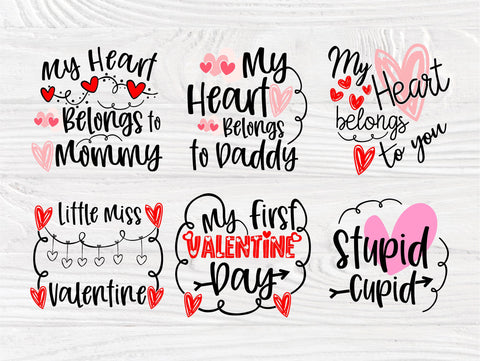 My Heart
Belongs to
Mommy
My
Heart
Belongs
to Daddy
My
Heart
belongs
to you
Little Miss
Valentine
My First
VALENTINE
Day
Stupid
Cupid